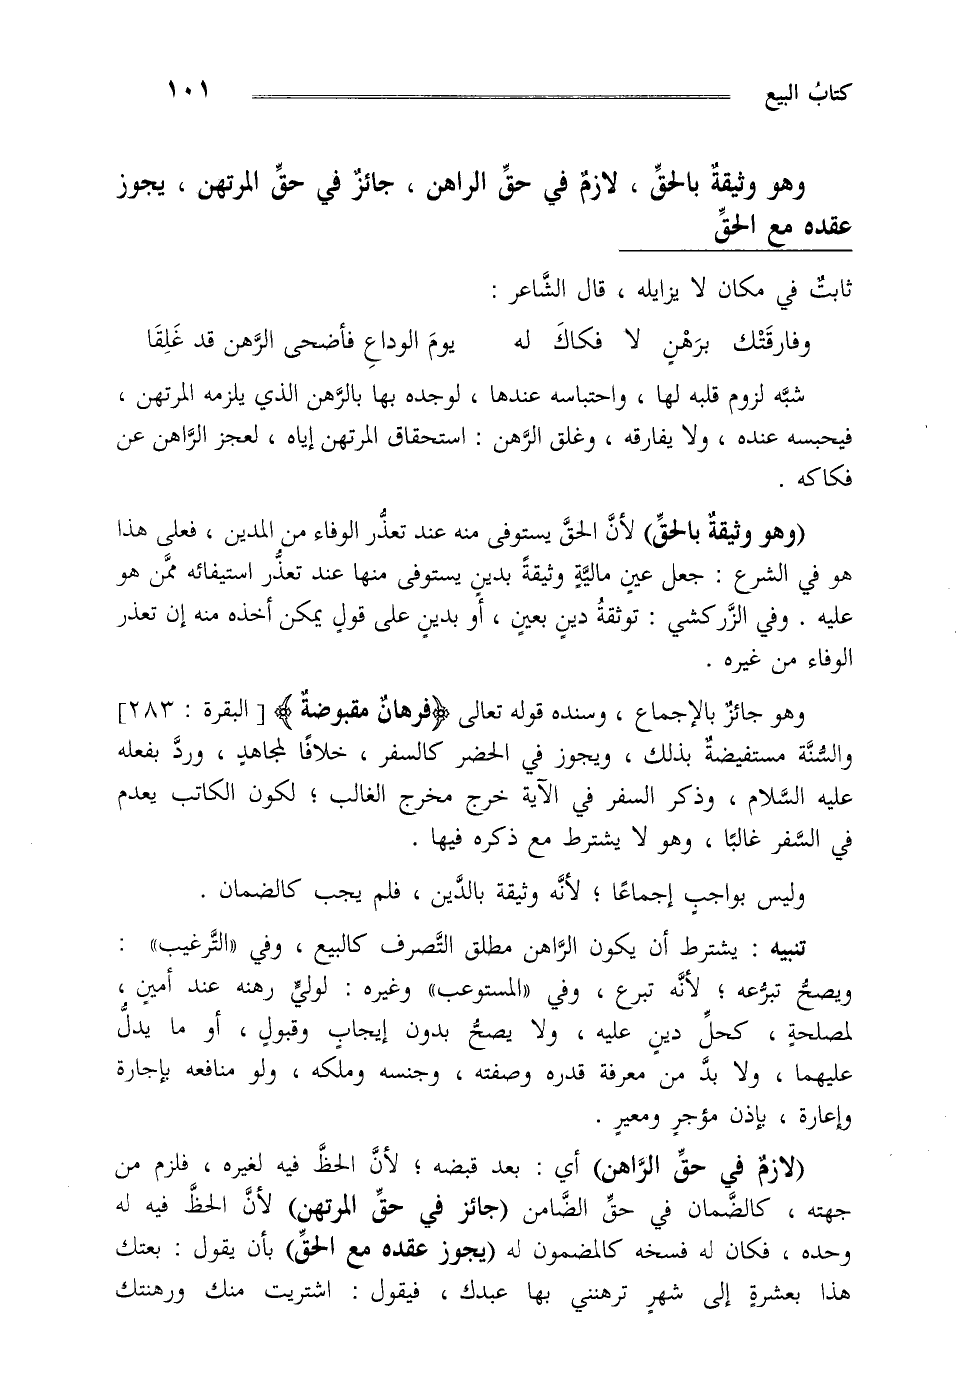 كتابُ البيع ١٠١
وهو وثيقةٌ بالحقِّ ، لازمٌ في حقِّ الراهن ، جائزٌ في حقِّ المرتهن ، يجوز
عقده مع الحقِّ
ثابتٌ في مكان لا يزايله ، قال الشَّاعر :
وفارقَتْك برَهْنٍ لا فكاكَ له يومَ الوداعِ فأضحى الرَّهن قد غَلِقَا
شبَّه لزوم قلبه لها ، واحتباسه عندها ، لوجده بها بالرَّهن الذي يلزمه المرتهن ،
فيحبسه عنده ، ولا يفارقه ، وغلق الرَّهن : استحقاق المرتهن إياه ، لعجز الرَّاهن عن
فكاكه .
(وهو وثيقةٌ بالحقِّ) لأنَّ الحقَّ يستوفى منه عند تعذُّر الوفاء من المدين ، فعلى هذا
هو في الشرع : جعل عينٍ ماليَّةٍ وثيقةً بدينٍ يستوفى منها عند تعذُّر استيفائه ممَّن هو
عليه . وفي الزَّركشي : توثقةُ دينٍ بعينٍ ، أو بدينٍ على قولٍ يمكن أخذه منه إن تعذر
الوفاء من غيره .
وهو جائزٌ بالإجماع ، وسنده قوله تعالى ﴿فرهانٌ مقبوضةٌ ﴾ [ البقرة : ٢٨٣]
والسُّنَّة مستفيضةٌ بذلك ، ويجوز في الحضر كالسفر ، خلافًا لمجاهدٍ ، وردَّ بفعله
عليه السَّلام ، وذكر السفر في الآية خرج مخرج الغالب ؛ لكون الكاتب يعدم
في السَّفر غالبًا ، وهو لا يشترط مع ذكره فيها .
وليس بواجبٍ إجماعًا ؛ لأنَّه وثيقة بالدَّين ، فلم يجب كالضمان .
تنبيه : يشترط أن يكون الرَّاهن مطلق التَّصرف كالبيع ، وفي «التَّرغيب» :
ويصحُّ تبرُّعه ؛ لأنَّه تبرع ، وفي «المستوعب» وغيره : لوليٍّ رهنه عند أمينٍ ،
لمصلحةٍ ، كحلِّ دينٍ عليه ، ولا يصحُّ بدون إيجابٍ وقبولٍ ، أو ما يدلُّ
عليهما ، ولا بدَّ من معرفة قدره وصفته ، وجنسه وملكه ، ولو منافعه بإجارة
وإعارة ، بإذن مؤجرٍ ومعيرٍ .
(لازمٌ في حقِّ الرَّاهن) أي : بعد قبضه ؛ لأنَّ الحظَّ فيه لغيره ، فلزم من
جهته ، كالضَّمان في حقِّ الضَّامن (جائز في حقِّ المرتهن) لأنَّ الحظَّ فيه له
وحده ، فكان له فسخه كالمضمون له (يجوز عقده مع الحقِّ) بأن يقول : بعتك
هذا بعشرةٍ إلى شهرٍ ترهنني بها عبدك ، فيقول : اشتريت منك ورهنتك